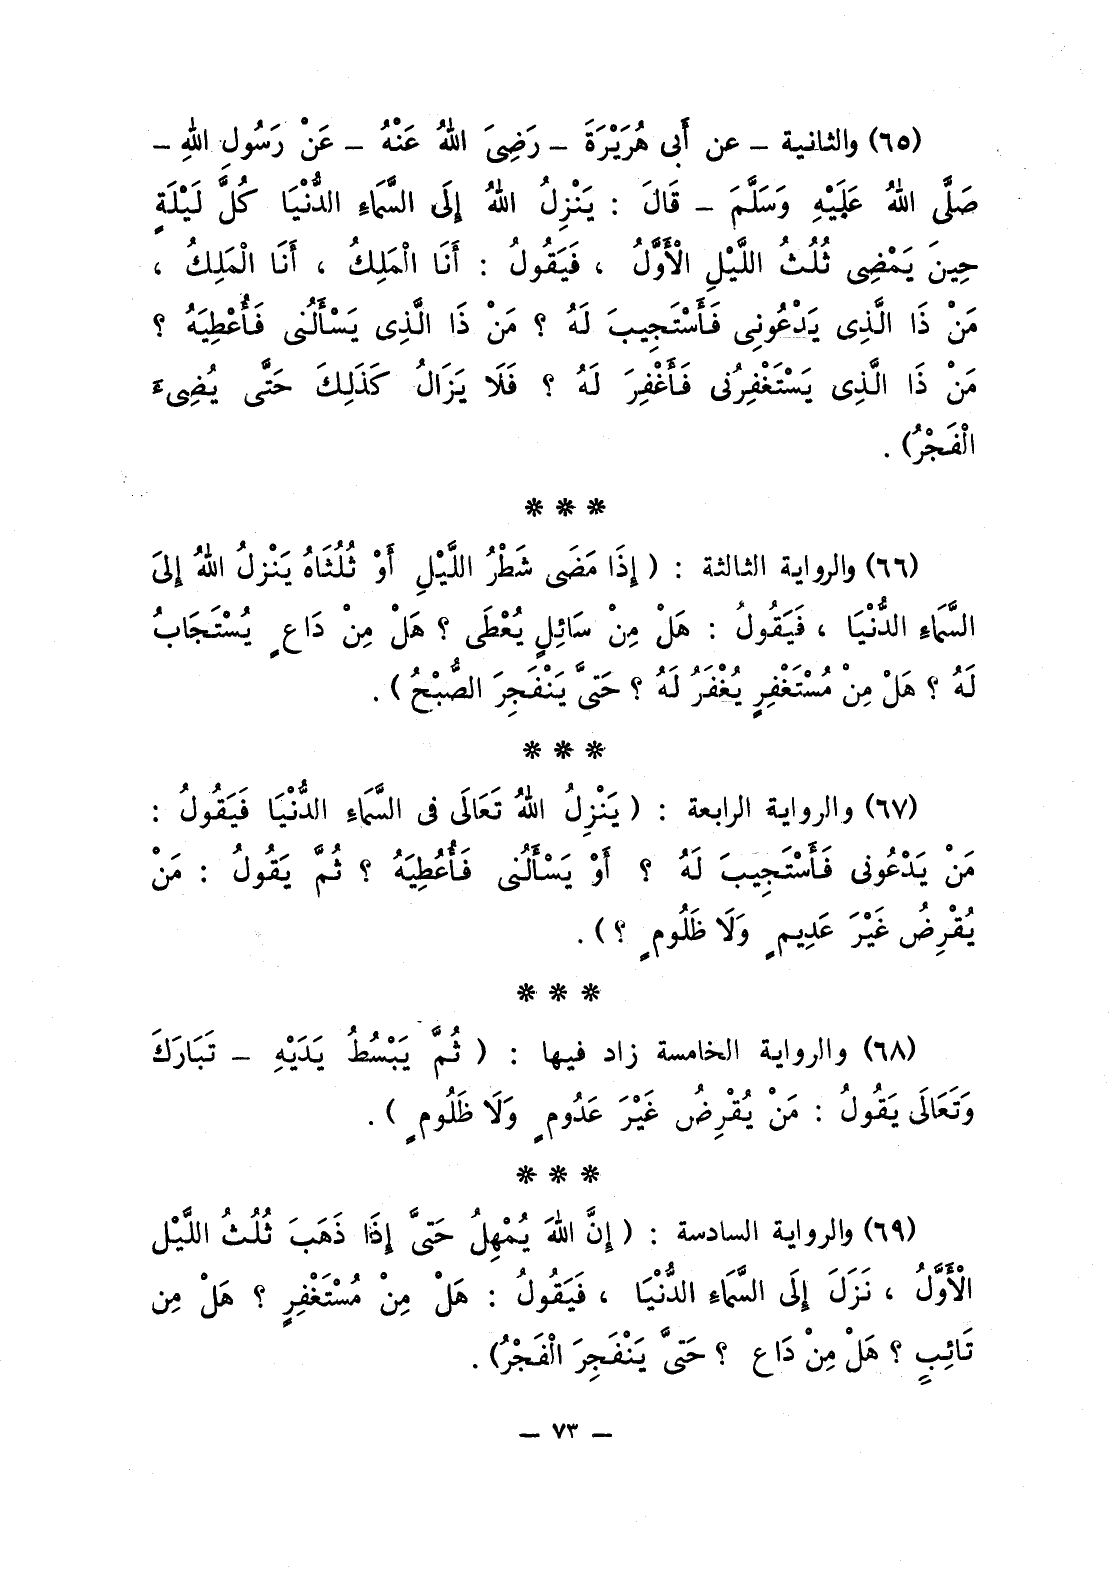 (٦٥) والثانية – عن أَبى هُرَيْرَةَ – رَضِىَ اللهُ عَنْهُ – عَنْ رَسُولِ اللهِ –
صَلَّى اللهُ عَلَيْهِ وَسَلَّمَ – قَالَ : يَنْزِلُ اللهُ إِلَى السَّمَاءِ الدُّنْيَا كُلَّ لَيْلَةٍ
حِينَ يَمْضِى ثُلُثُ اللَّيْلِ الْأَوَّلُ ، فَيَقُولُ : أَنَا الْمَلِكُ ، أَنَا الْمَلِكُ ،
مَنْ ذَا الَّذِى يَدْعُونِى فَأَسْتَجِيبَ لَهُ ؟ مَنْ ذَا الَّذِى يَسْأَلُنى فَأُعْطِيَهُ ؟
مَنْ ذَا الَّذِى يَسْتَغْفِرُنى فَأَغْفِرَ لَهُ ؟ فَلَا يَزَالُ كَذَلِكَ حَتَّى يُضِىءَ
الْفَجْرُ) .
* * *
(٦٦) والرواية الثالثة : ( إِذَا مَضَى شَطْرُ اللَّيْلِ أَوْ ثُلُثَاهُ يَنْزِلُ اللهُ إِلىَ
السَّمَاءِ الدُّنْيَا ، فَيَقُولُ : هَلْ مِنْ سَائِلٍ يُعْطَى ؟ هَلْ مِنْ دَاعٍ يُسْتَجَابُ
لَهُ ؟ هَلْ مِنْ مُسْتَغْفِرٍ يُغْفَرُ لَهُ ؟ حَتىَّ يَنْفَجِرَ الصُّبْحُ ) .
* * *
(٦٧) والرواية الرابعة : ( يَنْزِلُ اللهُ تَعَالَى فى السَّمَاءِ الدُّنْيَا فَيَقُولُ :
مَنْ يَدْعُونى فَأَسْتَجِيبَ لَهُ ؟ أَوْ يَسْأَلُنى فَأُعْطِيَهُ ؟ ثُمَّ يَقُولُ : مَنْ
يُقْرِضُ غَيْرَ عَدِيمٍ وَلَا ظَلُومٍ ؟ ) .
* * *
(٦٨) والرواية الخامسة زاد فيها : ( ثُمَّ يَبْسُطُ يَدَيْهِ – تَبَارَكَ
وَتَعَالَى يَقُولُ : مَنْ يُقْرِضُ غَيْرَ عَدُومٍ وَلَا ظَلُومٍ ) .
* * *
(٦٩) والرواية السادسة : ( إِنَّ اللهَ يُمْهِلُ حَتىَّ إِذَا ذَهَبَ ثُلُثُ اللَّيْل
الْأَوَّلُ ، نَزَلَ إِلَى السَّمَاءِ الدُّنْيَا ، فَيَقُولُ : هَلْ مِنْ مُسْتَغْفِرٍ ؟ هَلْ مِن
تَائِبٍ ؟ هَلْ مِنْ دَاعٍ ؟ حَتىَّ يَنْفَجِرَ الْفَجْرُ) .
– ٧٣ –